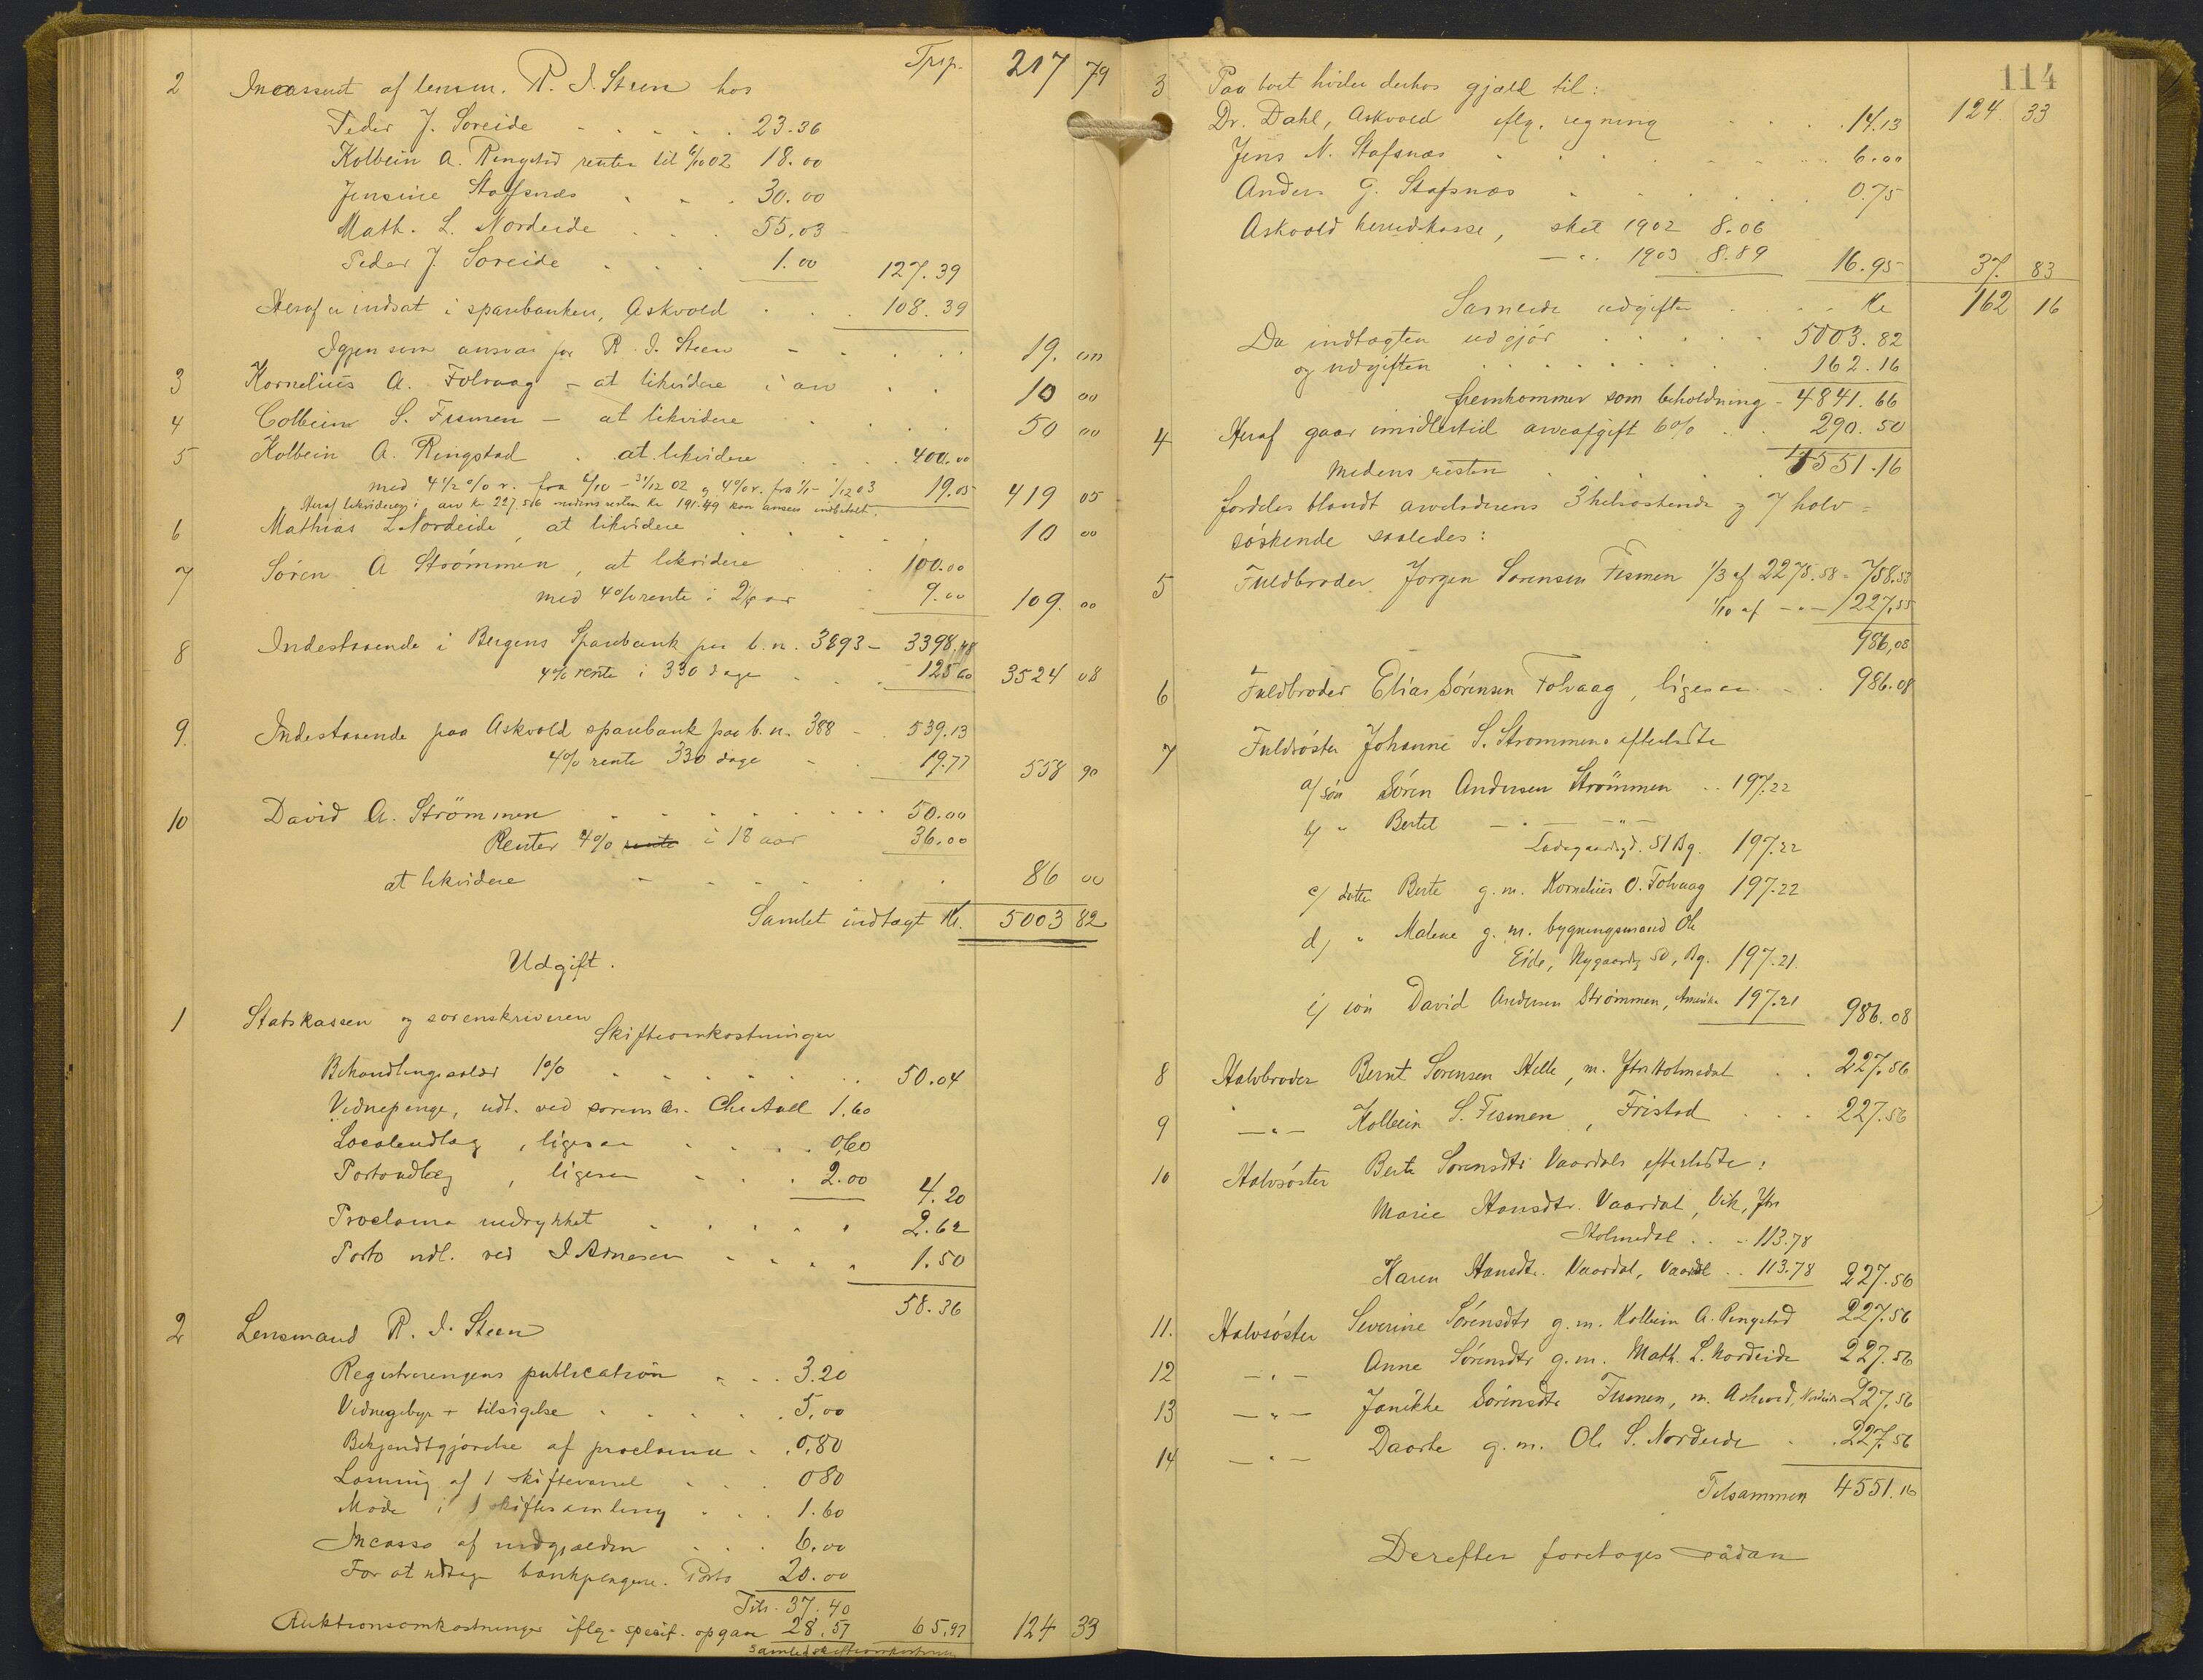 Trsp. 217 79
2 Incasseret af lensm. R. I. Steen hos
Peder J. Soreide 23.36
Kolbein A. Ringstad renter til 6/10 02 18.00
Jensine Stafsnæs 30.00
Math. L. Nordeide 55.03
Peder J. Soreide 1.00 127.39
Heraf er indsat i sparebanken, Askvold 108.39
Igjen som ansvar for R. I. Steen 19.00
3 Kornelius A. Folvaag - at likvidere i arv 10 00
4 Colbein S. Fismen - at likvidere 50 00
5 Kolbein A. Ringstad at likvidere 400.00
med 4 1/2 % r. fra 6/10 - 31/12 02 og 4% r. fra 1/1 - 1/12 03 19.05 419 05
Heraf likvideres i arv kr 227.56 medens resten kr 191.49 kan ansees indbetalt.
6 Mathias L Nordeide, at likvidere 10 00
7 Sören A Strömmen, at likvidere 100.00
med 4% rente i 2 1/4 aar 9.00 109.00
8 Indestaaende i Bergens Sparebank paa b.n. 3893 - 3398.48
4% rente i 330 dage 125.60 3524 08
9. Indestaaende paa Askvold sparebank paa b.n. 388 - 539.13
4% rente 330 dage 19.77 558 90
10 David A. Strömmen 50.00
Renter 4% rente i 18 aar 36.00
at likvidere 86 00
Samlet indtægt Kr. 5003 82
Udgift.
1 Statskassen og sorenskriveren
Skifteomkostninger
Behandlingssalær 1% 50.04
Vidnepenge, udl. ved sorenskr. Chr Aall 1.60
Localeudlæg, ligesaa 0.60
Portoudlæg, ligesaa 2.00 4.20
Proclama indrykket 2.62
Porto udl. ved I Arnesen 1.50
58.36
2 Lensmand R. I. Steen
Registreringens publication 3.20
Vidnegebyr + tilsigelse 5.00
Bekjendtgjørelse af proclama 0.80
Læsning af 1 skiftevarsel 0 80
Møde i 1 skiftesamling 1.60
Incasso af indgjælden 6.00
For at udtage bankpengene. Porto 20.00
Tils. 37.40
Auktionsomkostninger iflg. specif. opgave 28.57 65.97 124 33
Samlede skifteomkostninger
114
3 Paa boet hviler derhos gjæld til: 124 33
Dr. Dahl, Askvold iflg. regning 14.13
Jens N. Stafsnæs 6.00
Anders G. Stafsnæs 0.75
Askvold herredskasse, skat 1902 8.06
— " — 1903 8.89 16.95 37. 83
Samlede udgifter Kr 162 16
Da indtægten udgjör 5003.82
og udgiften 162.16
fremkommer som beholdning - 4841.66
4 Heraf gaar imidlertid arveafgift 6% 290.50
medens resten 4551.16
fordeles blandt arveladerens 3 helsøskende og 7 halv=
søskende saaledes:
5 Fuldbroder Jørgen Sørensen Fismen 1/3 af 2275.58 = 758.53
1/10 af — " — 227.55
986.08
6 Fuldbroder Elias Sörensen Folvaag, ligesaa 986.08
7 Fuldsöster Johanne S. Strömmens efterladte
a/ sön Sören Andersen Strömmen 197.22
b/ " Bertel — " — — " —
Ladegaardsgd. 51 Bg. 197.22
c/ datter Berte g.m. Kornelius O. Folvaag 197.22
d/ " Malene g.m. bygningsmand Ole
Eide, Nygaardsg 50, Bg. 197.21
e/ sön David Andersen Strömmen, Amerika 197.21 986.08
8 Halvbroder Bernt Sørensen Helle, m. Ytre Holmedal 227.56
9 — " — Kolbein S. Fismen, Fristad 227.56
10 Halvsöster Berte Sørensdtr Vaardals efterladte:
Marie Hansdtr. Vaardal, Vik, Ytre
Holmedal 113.78
Karen Hansdtr. Vaardal, Vaardal 113.78 227.56
11. Halvsöster Severine Sörensdtr g.m. Kolbein A. Ringstad 227.56
12 — " — Anne Sörensdtr g.m. Math. L. Nordeide 227.56
13 — " — Janikke Sörensdtr Fismen, m. Askvold, Nordeide 227.56
14 — " — Daarte g.m. Ole S. Nordeide 227.56
Tilsammen 4551.16
Derefter foretages sådan